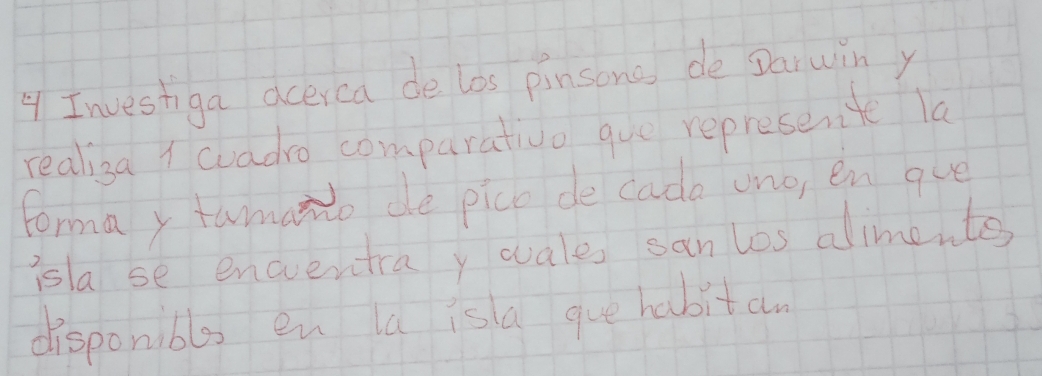 4 Investiga acerca de los pinsones de Darwin y
realiza 1 cuadro comparativo que represente la
forma y tamaño de pico de cada uno, en que
isla se encuentra y cuales son los alimentos
disponibles en la isla que habitan